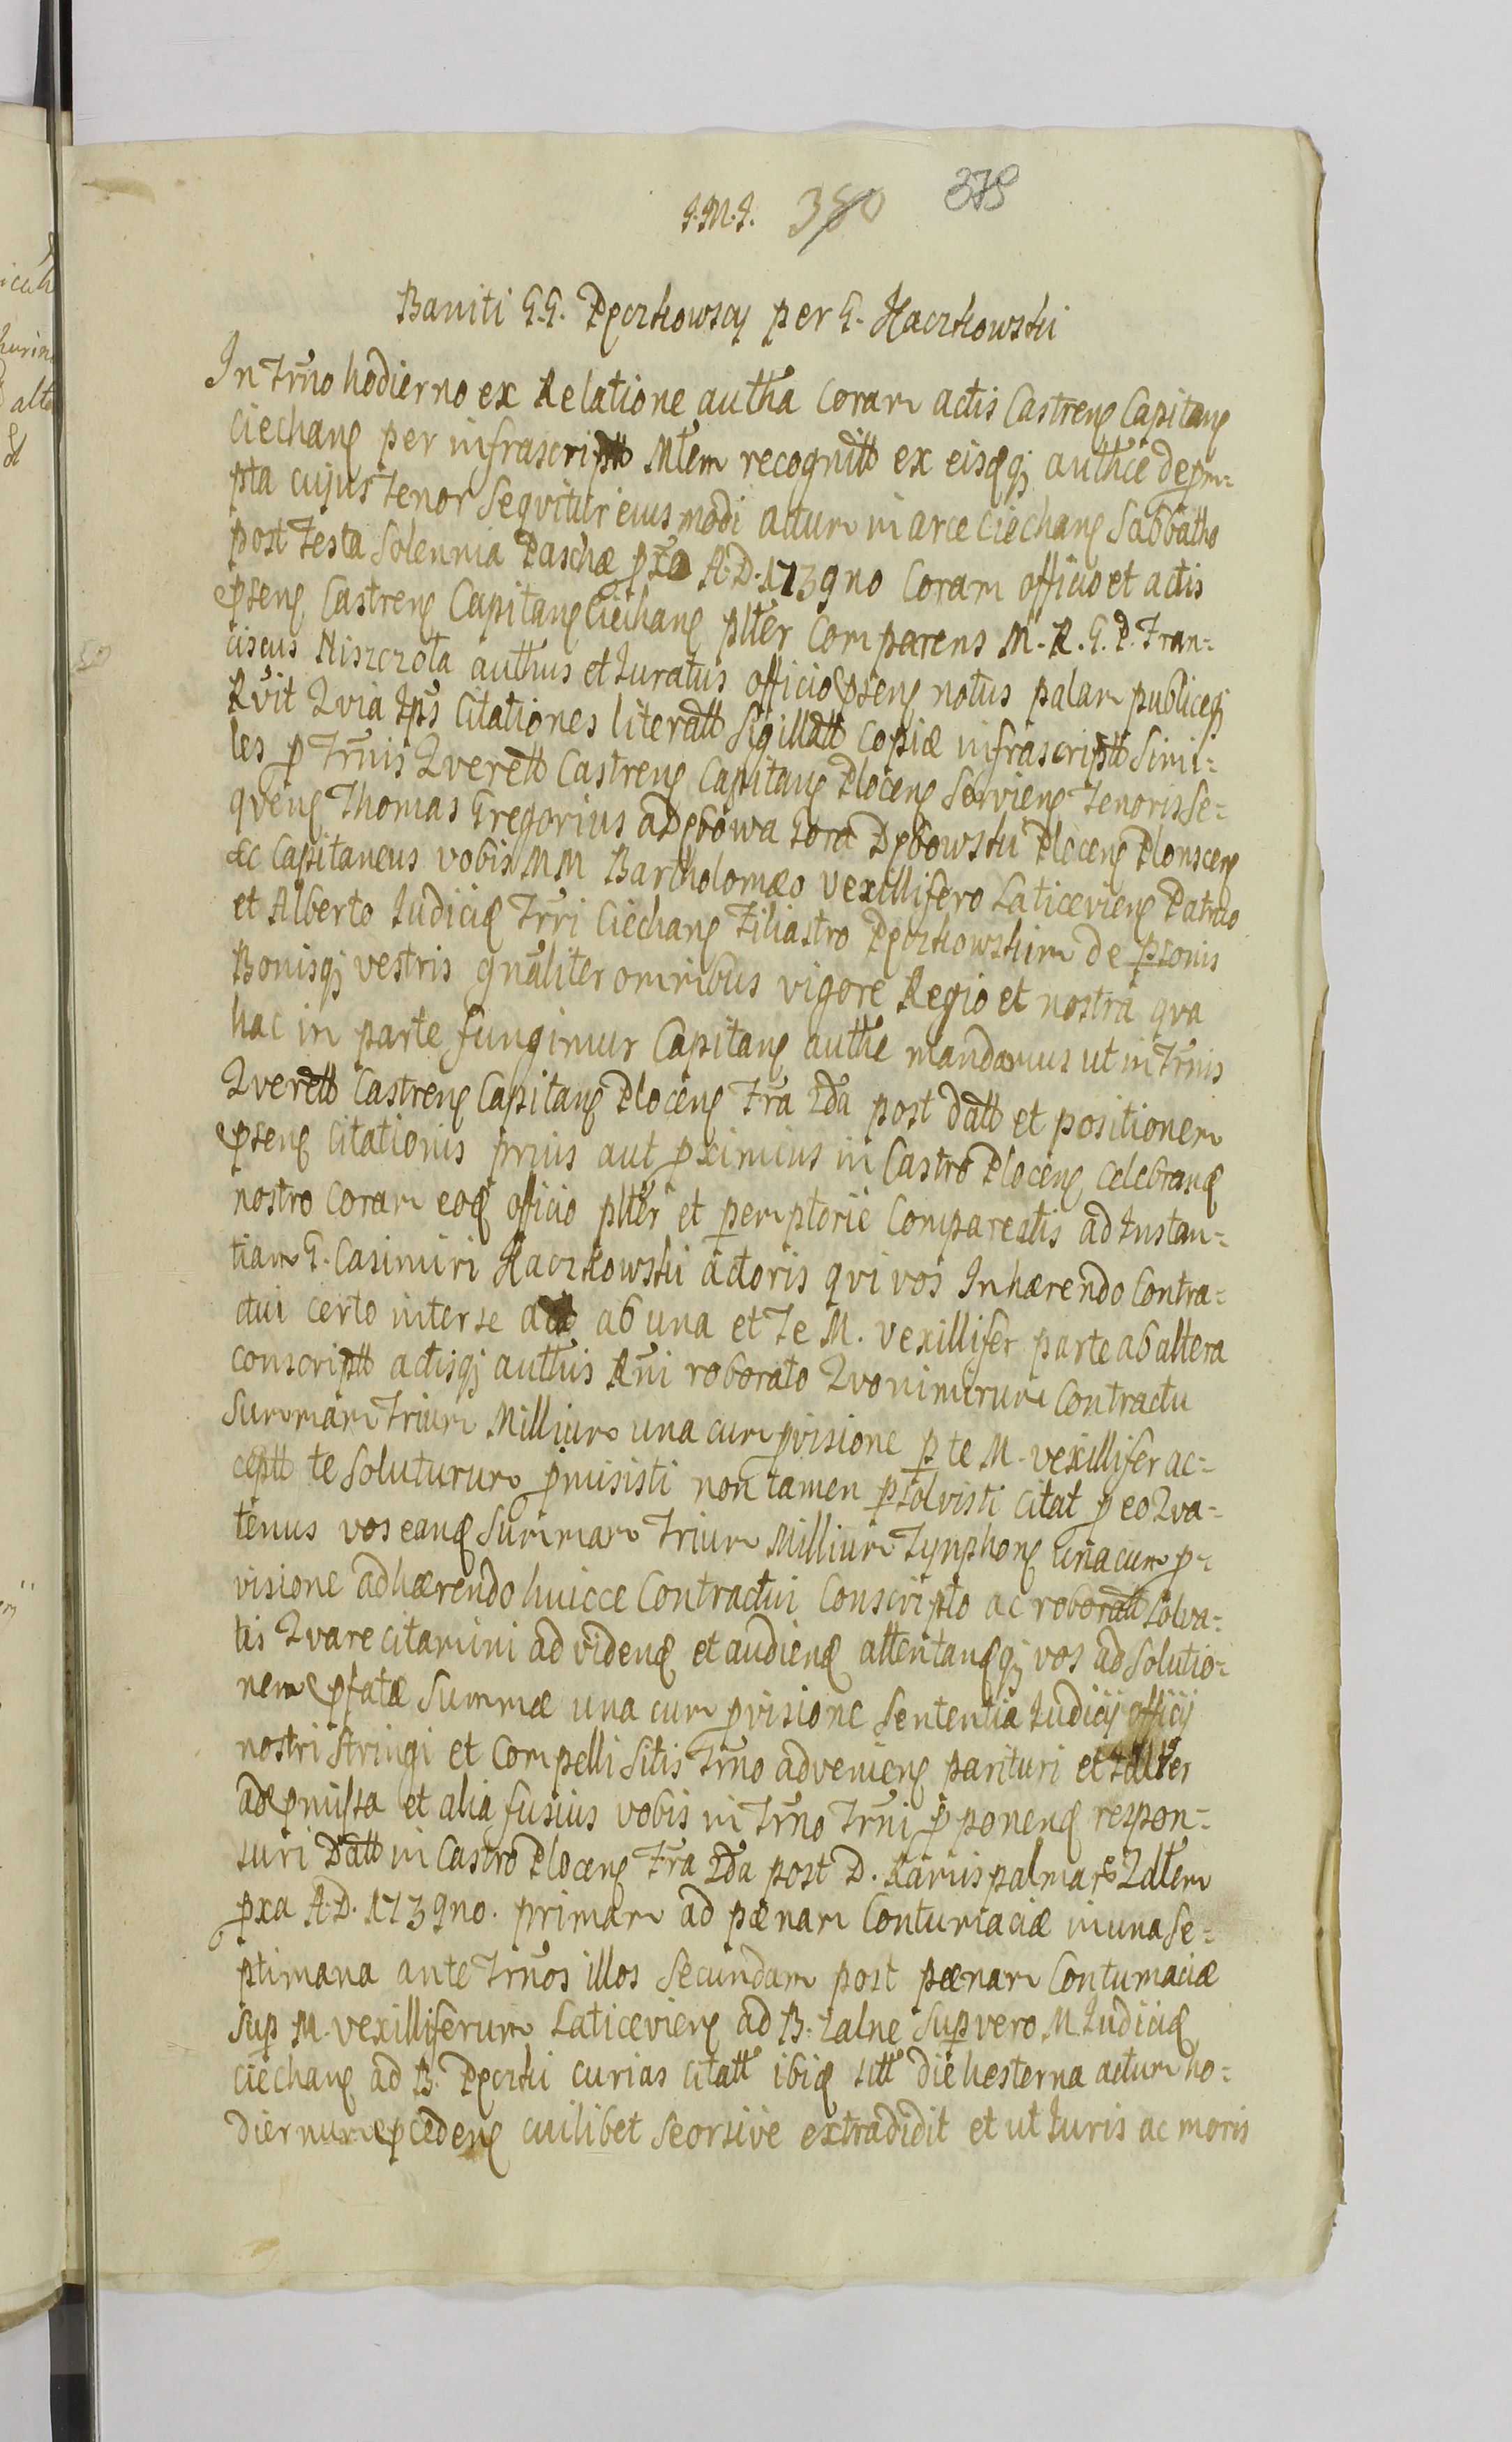 J.M.J. 380 378
Baniti G.G. Pęczkowscy per G. Kaczkowski
In Trno hodierno ex Relatione autha coram actis Castrens Capitans
Ciechans per infrascriptt Mtem recognitt ex eisdqȝ authce deprm-
pta cujus Tenor sequitur eius modi actum in arce Ciechans Sabbatho
post Festa Solennia Paschæ pxa A.D. 1739no Coram officio et actis
psens Castrens Capitans Ciechans plter Comparens M.R.G.P. Fran-
ciscus Niszczota authus et Iuratus officio psens notus palam publiceqȝ
Rvit Qvia Ips Citationes literatt Sigillatt Copiæ infrascriptt Simi-
les p Trnis Qverett Castrens Capitans Plocens Serviens Tenoris Se-
qvens Thomas Gregorius a Dębowa Gora Dębowski Plocens Plonscens
&c Capitaneus vobis MM Bartholomæo vexillifero Laticeviens Patruo
et Alberto Iudicid Trri Ciechans Filiastro Pęczkowskim de psonis
Bonisqȝ vestris gnaliter omnibus vigore Regio et nostra qva
hac in parte fungimur Capitans authe mandamus ut in Trnis
Qverett Castrens Capitans Plocens Fra 2da post datt et positionem
psens Citationis prius aut pximius in Castro Plocens celebrand
nostro coram eod officio plter et peremptorie Compareatis ad Instan-
tiam G. Casimiri Kaczkowski actoris qvi vos Inhærendo Contra-
ctui certo inter se ab una et Te M. vexillifer parte ab altera
conscriptt actisqȝ authis Rni roborato Qvo nimirum Contractu
Summam Trium Millium una cum pvisione p te M. vexillifer ac-
ceptt te soluturum pmisisti non tamen psolvisti citat p eo Qva-
tenus vos eand Summam Trium Millium Tynphons una cum p-
visione adhærendo huicce Contractui Conscripto ac roboratt Solva-
tis Qvare citamini ad videnđ et audienđ attentandqȝ vos ad Solutio-
nem pfatæ Summæ una cum pvisione Sententia Iudicij officij
nostri Stringi et Compelli Sitis Trno adveniens parituri et talter
ad pmissa et alia fusius vobis in Trno Trni pponend respon-
suri Datt in Castro Plocens Fra 2da post D. Ramis palmar
pxa A.D. 1739no. primam ad pænam Contumaciæ in una Se-
ptimana ante Trnos illos Secundam post pænam Contumaciæ
Sup M. vexilliferum Laticeviens ad B. Zalne Sup vero M. Iudicid
Ciechans ad B. Pęczki curias citatt ibid sitt die hesterna actum ho-
diernum pcedens cuilibet Seorsive extradidit et ut Iuris ac moris